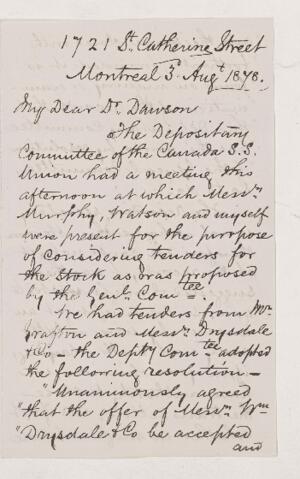 1721 St. Catherine Street
Montreal 3 Augt 1878.
My Dear Dr. Dawson
The Depositary
Committee of the Canada S.S.
Union had a meeting this
afternoon at which Messrs.
Murphy, Watson and myself
were present for the purpose
of considering tenders for
the stock as was proposed
by the Genl. Comtee.
We had tenders from Mr.
Grafton and Messrs. Drysdale
& Co - the Depty Comtee adopted
the following resolution -
Unanimously agreed
"that the offer of Messrs. Wm
"Drysdale & Co be accepted
and